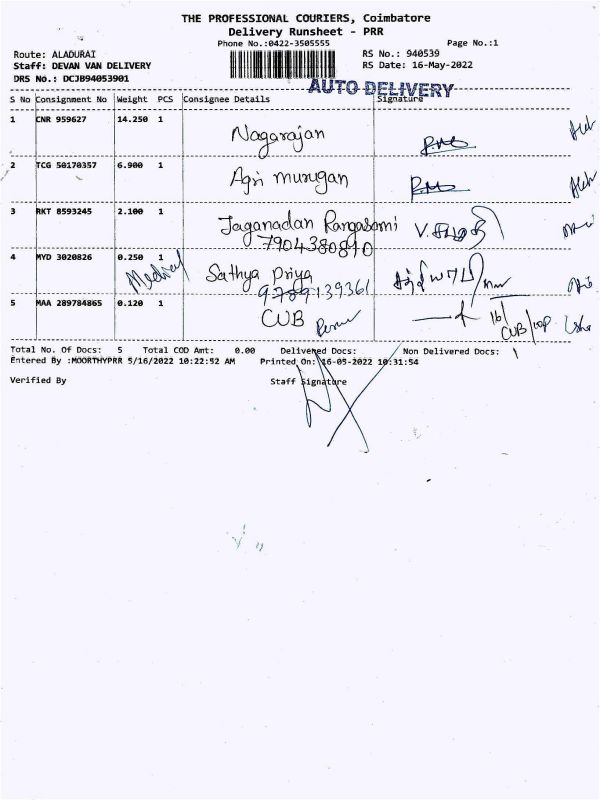 THE PROFESSIONAL COURIERS, Coimbatore
Delivery Runsheet - PRR
Phone No.:0422-3505555 Page No.:1
Route: ALADURAI RS No.: 940539
Staff: DEVAN VAN DELIVERY RS Date: 16-May-2022
DRS No.: DCJB94053901
AUTO DELIVERY
S No Consignment No Weight PCS Consignee Details Signature
1 CNR 959627 14.250 1 Nagarajan
2 TCG 50170357 6.900 1 Agri murugan
3 RKT 8593245 2.100 1 Jaganadan Rangasami
7904380890
4 MYD 3020826 0.250 1 Medical Sathya Priya
9789139361
5 MAA 289784865 0.120 1 CUB
Total No. Of Docs: 5 Total COD Amt: 0.00 Delivered Docs: Non Delivered Docs:
Entered By :MOORTHYPRR 5/16/2022 10:22:52 AM Printed On: 16-05-2022 10:31:54
Verified By Staff Signature